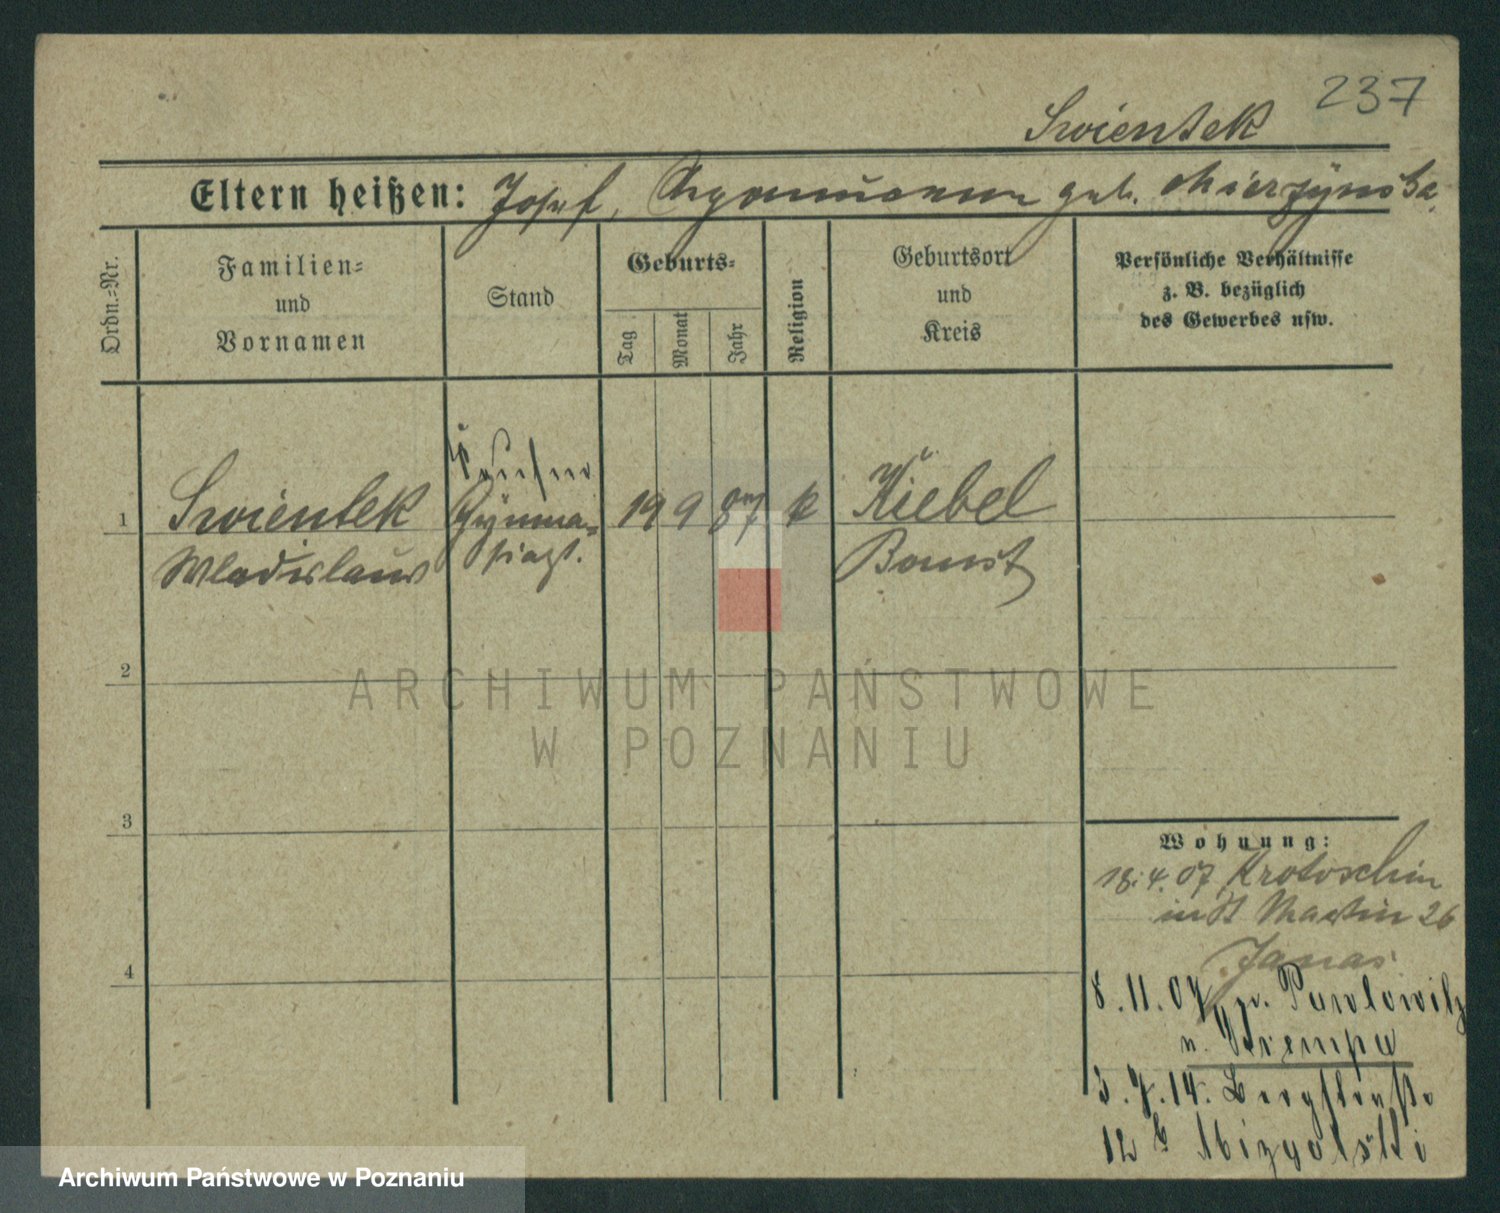 237
Swientek
Eltern heißen: Josef, geb. Mierzynska
Ordn.=Nr.
Familien=
und
Vornamen
Stand
Geburts=
Tag
Monat
Jahr
Religion
Geburtsort
und
Kreis
Persönliche Verhältnisse
z. B. bezüglich
des Gewerbes usw.
1
Swientek
Wladislaus
Gymna=
siast.
19 9 87 k
Kiebel
Bomst
2
3
4
ARCHIWUM PAŃSTWOWE
W POZNANIU
Wohnung:
18.4.07 Krotoschin
in St Martin 26
Janas
8.11.07 n. Pawlowitz
n. Krempa
3.7.14. Bergstraße
12b Mizgalski
Archiwum Państwowe w Poznaniu